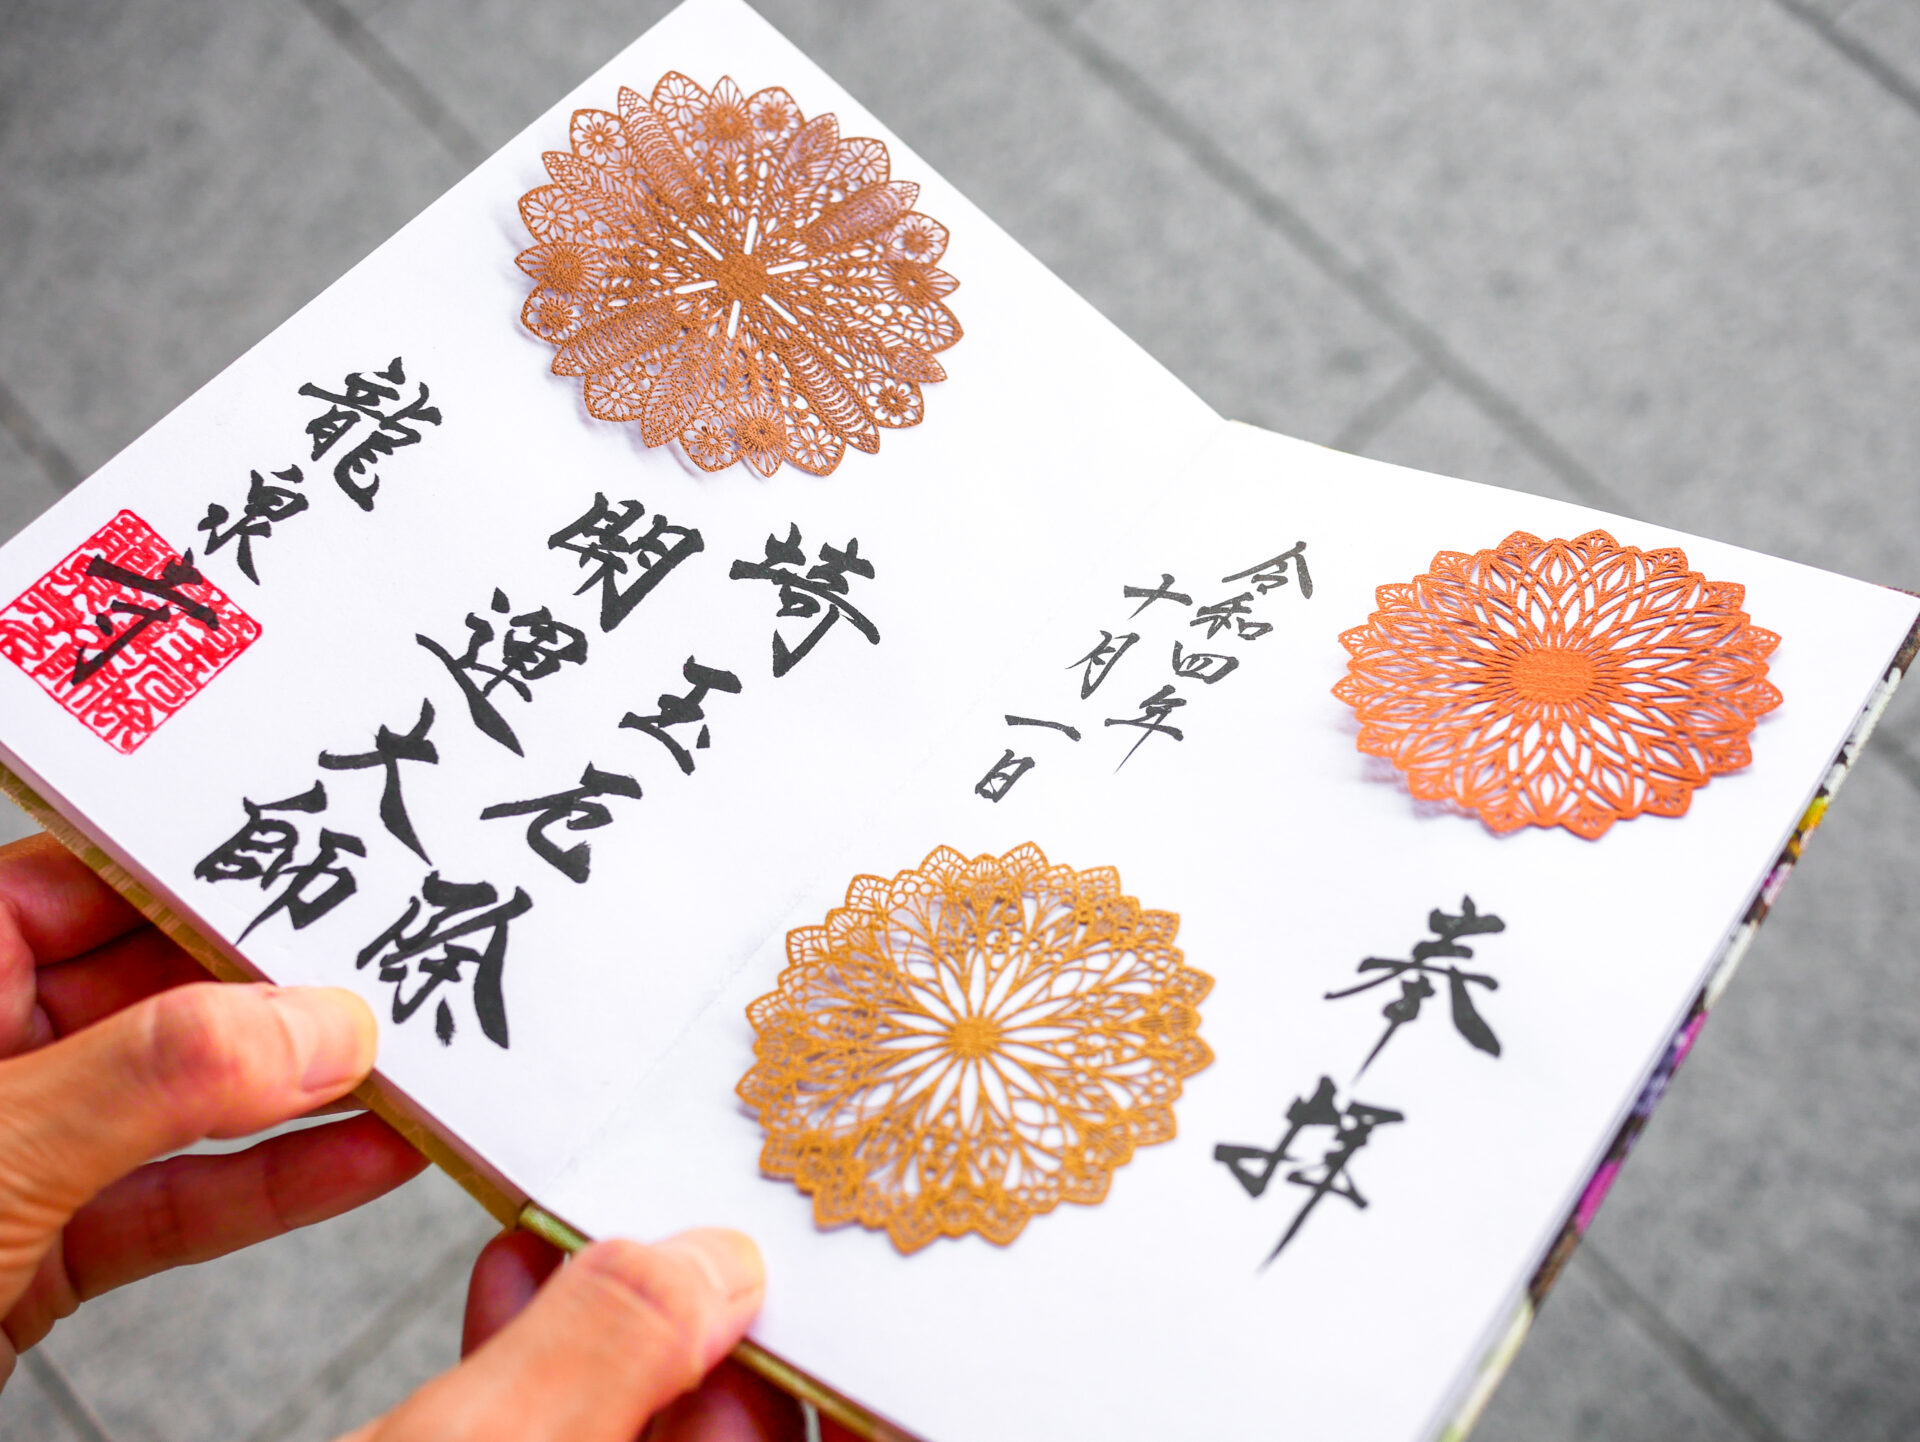 奉拝
令和四年
十月一日
埼玉厄除
開運大師
龍泉寺